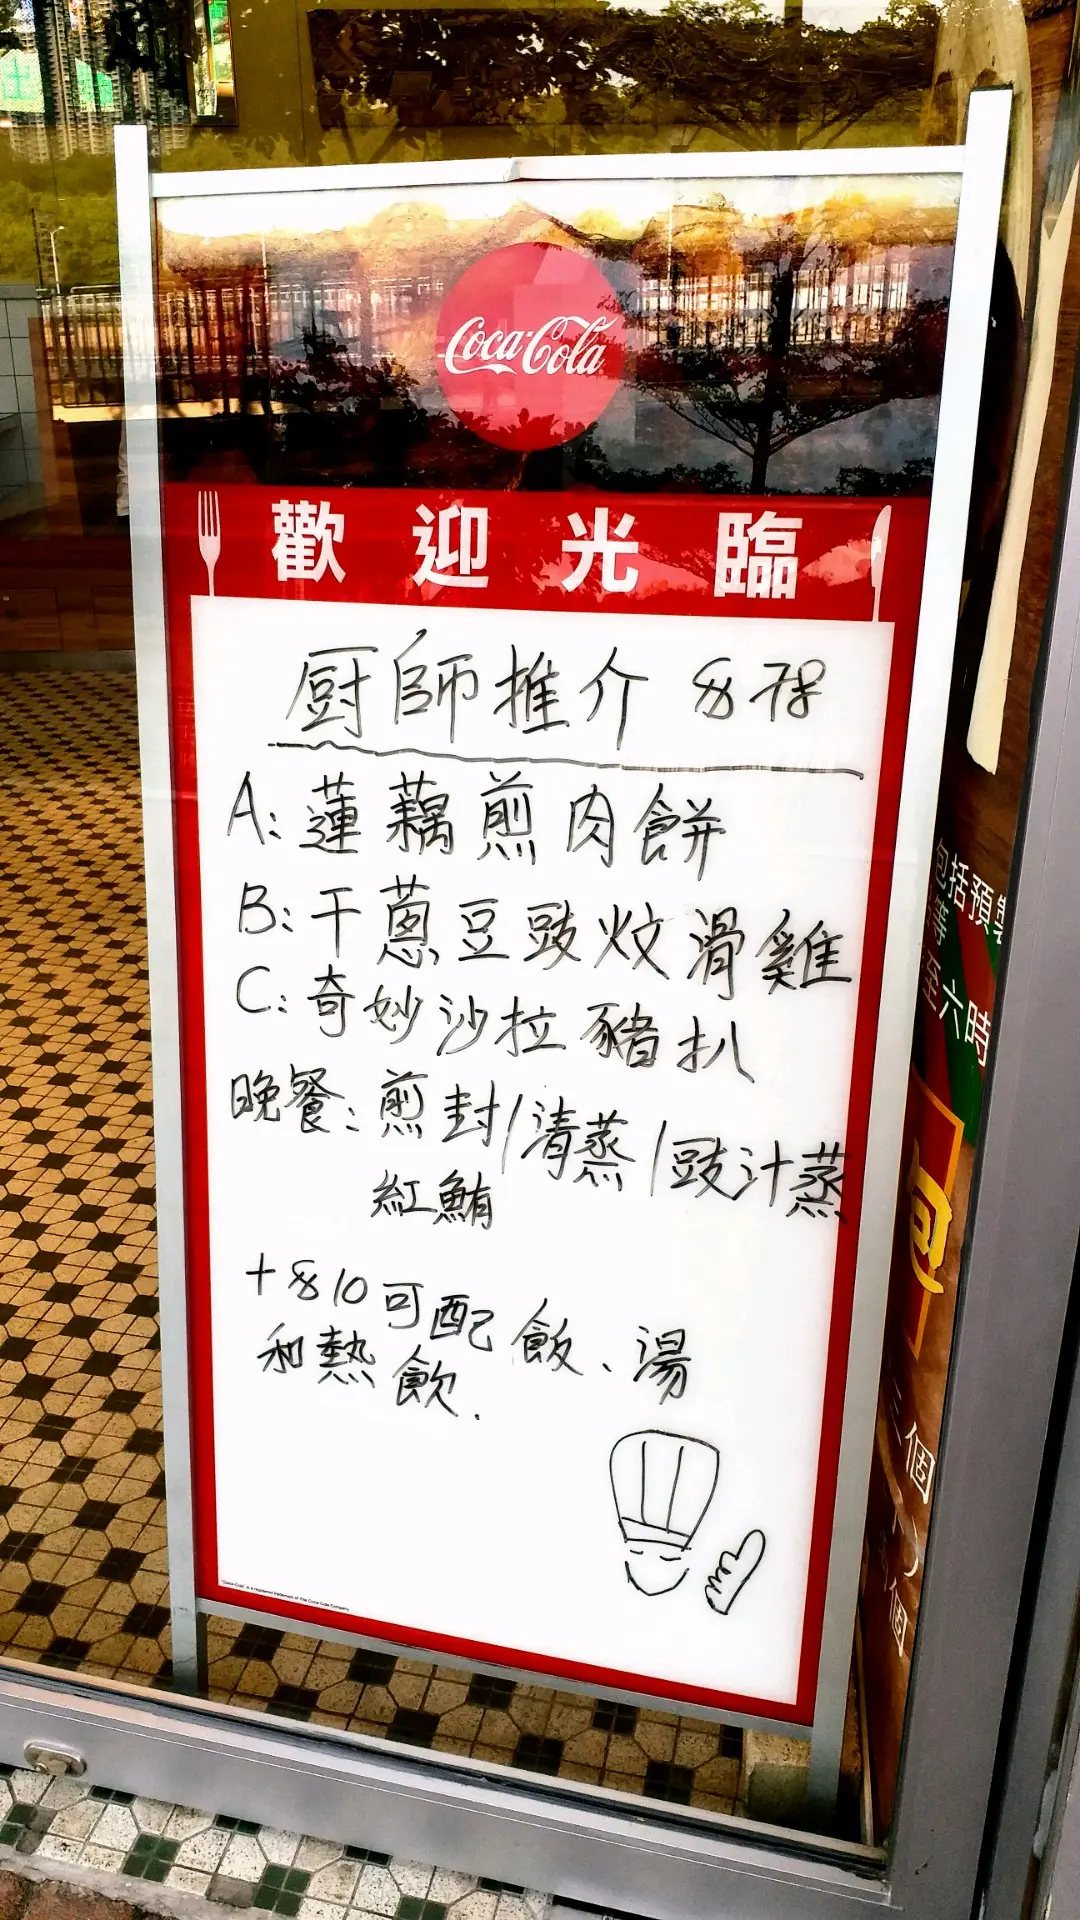 Coca-Cola
歡迎光臨
厨師推介 $ 78
A: 蓮藕煎肉餅
B: 干蔥豆豉炆滑雞
C: 奇妙沙拉豬扒
晚餐: 煎封/清蒸/豉汁蒸
紅鮪
+$10可配飯、湯
和熱飲.
"Coca-Cola" is a registered trademark of The Coca-Cola Company.
包括預
至六時
個
個